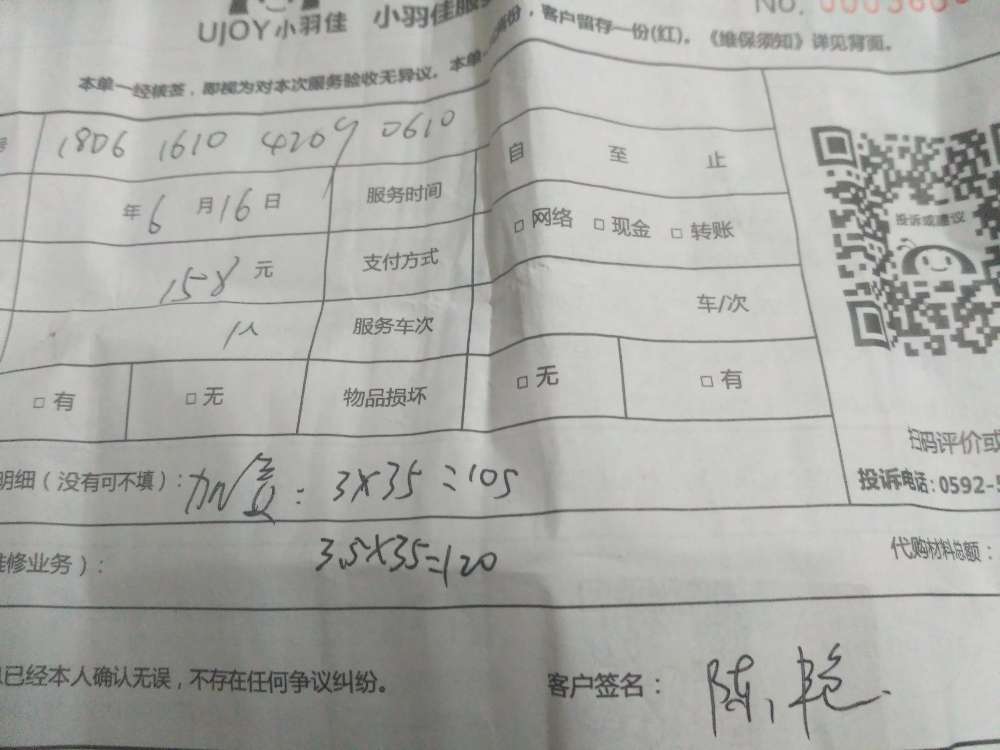 UJOY小羽佳 小羽佳服务
No. 0003600
本单一经核签，即视为对本次服务验收无异议。本单
份，客户留存一份(红)。《维保须知》详见背面。
号 1806 1610 4209 0610 自 至 止
年6月16日 服务时间 □网络 □现金 □转账
158元 支付方式
1人 服务车次 车/次
□有 □无 物品损坏 □无 □有
投诉或建议
扫码评价或
投诉电话：0592-5
明细（没有可不填）：加 ： 3×35=105
3.5×35=120
维修业务）： 代购材料总额：
已经本人确认无误，不存在任何争议纠纷。 客户签名：陈艳